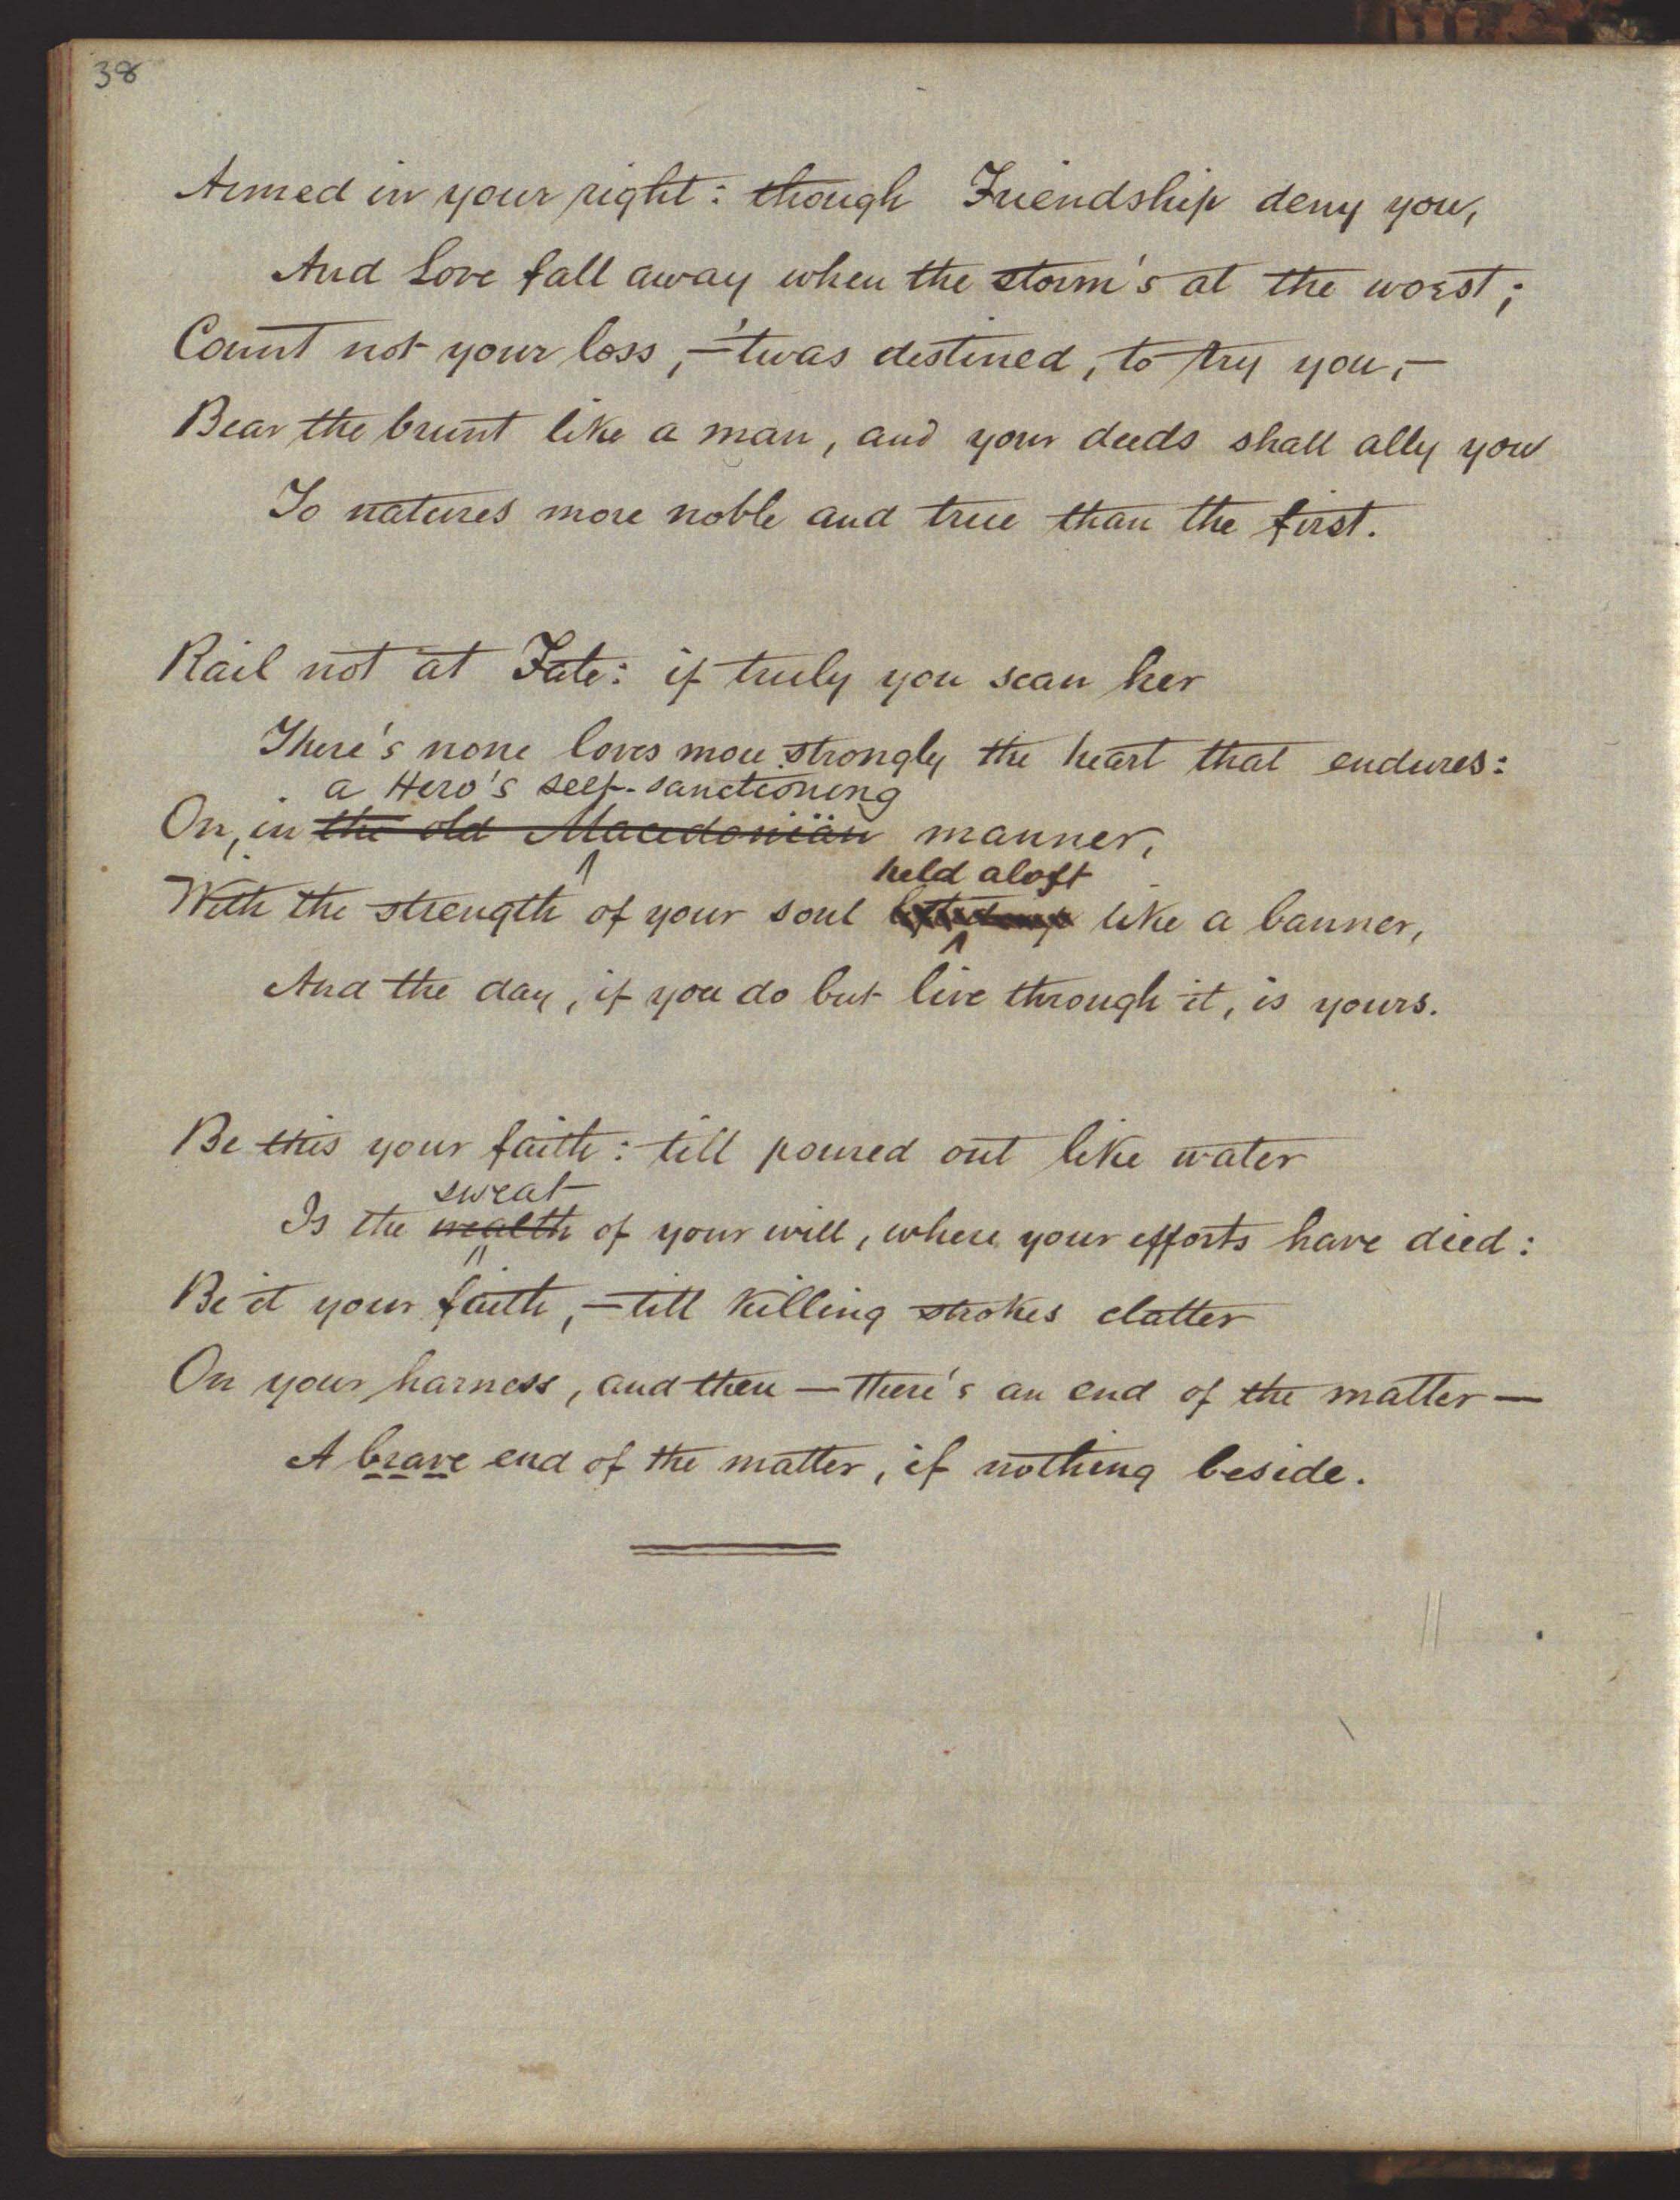 38
Armed in your right: though Friendship deny you,
And Love fall away when the storm's at the worst;
Count not your loss,—'twas destined, to try you,—
Bear the brunt like a man, and your deeds shall ally you
To natures more noble and true than the first.
Rail not at Fate: if truly you scan her
There's none loves more strongly the heart that endures:
a Hero's self-sanctioning
On, in the old Macedoniän manner,
held aloft
With the strength of your soul like a banner,
And the day, if you do but live through it, is yours.
Be this your faith: till poured out like water
sweat
Is the wealth of your will, where your efforts have died:
Be it your faith,—till killing strokes clatter
On your harness, and then—there's an end of the matter—
A brave end of the matter, if nothing beside.